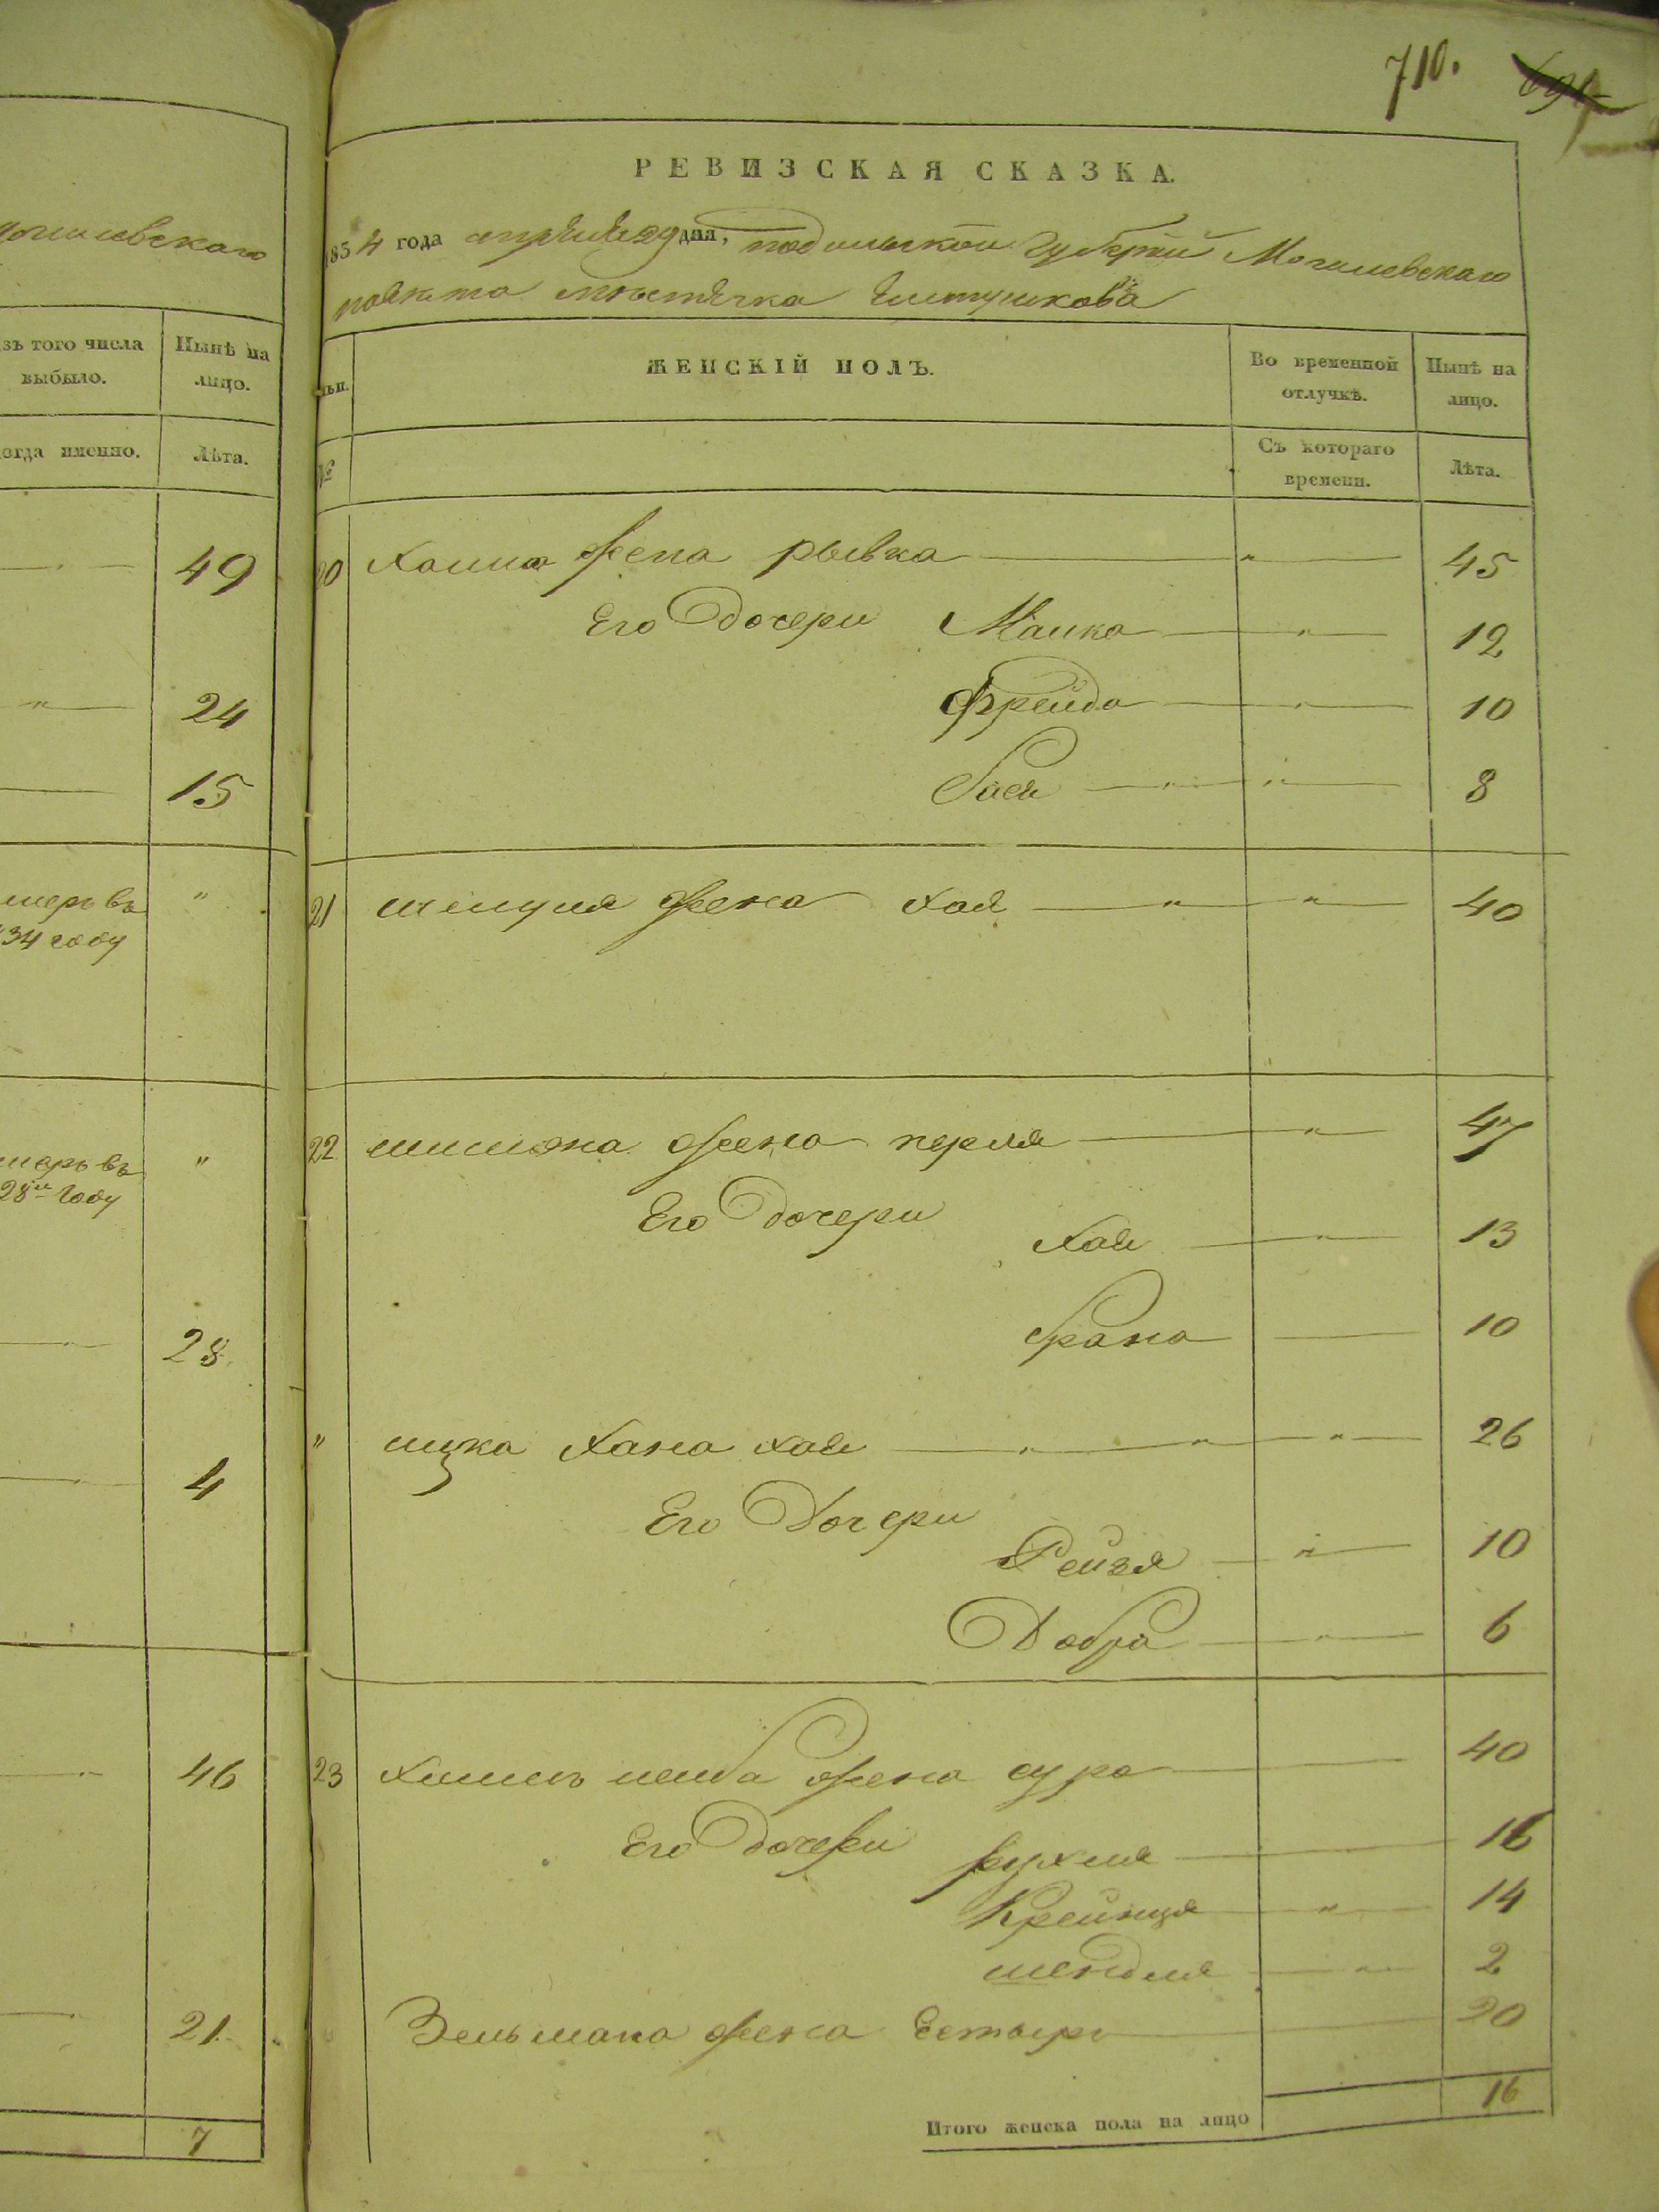 710. 691
РЕВИЗСКАЯ СКАЗКА.
1854 года апреля 29 дня, подольской губернии Могилевскаго
повета местечка
зъ того числа выбыло.
Нынѣ на лицо.
огда именно.
Лѣта.
49
24
15
мерь въ "
34 году
мерь въ "
28м году
28
4
46
21
7
№
ЖЕНСКІЙ ПОЛЪ.
Во временной отлучкѣ.
Нынѣ на лицо.
Съ котораго времени.
Лѣта.
20 жена рывка " 45
Его дочери Маика " 12
Фрейда " 10
Бася " " 8
21 жена хая " " 40
22 жена перля " 47
Его дочери
Хая " 13
Брана 10
" ицка Хана хая " " " 26
Его Дочери
Рейзя " 10
Добра " 6
23 лейба жена сура 40
Его дочери рухля 16
Крейнця " 14
шендля " 2
Зельмана жена Естырь 20
Итого женска пола на лицо 16